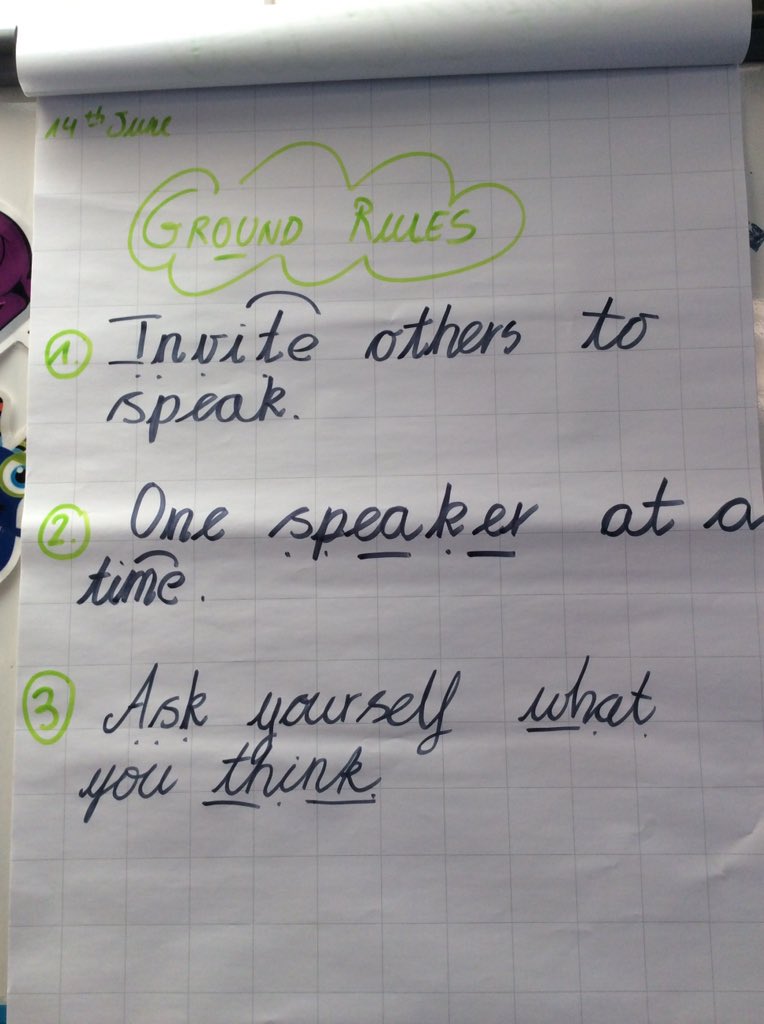 14th June
GROUND RULES
1. Invite others to
speak.
2. One speaker at a
time.
3 Ask yourself what
you think.